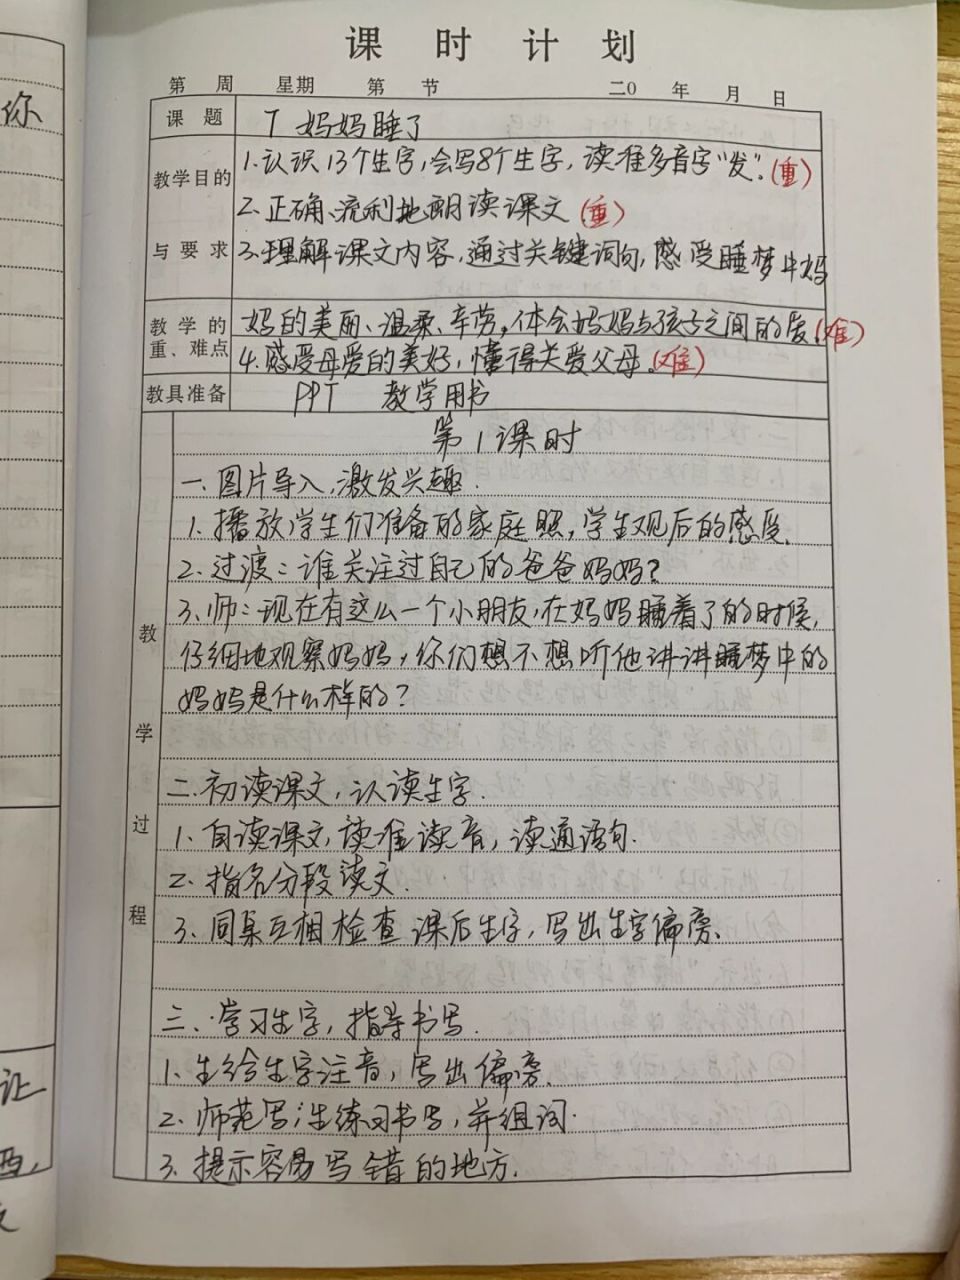 你
课时计划
第 周 星期 第 节 二0 年 月 日
课题 7 妈妈睡了
教学目的与要求
1.认识13个生字,会写8个生字,读准多音字"发"。(重)
2.正确、流利地朗读课文(重)
3.理解课文内容,通过关键词句,感受睡梦中妈
教学的重、难点
妈的美丽、温柔、辛劳。体会妈妈与孩子之间的爱。(难)
4.感受母爱的美好,懂得关爱父母。(难)
教具准备 PPT 教学用书
教学过程
第1课时
一.图片导入,激发兴趣.
1.播放学生们准备的家庭照,学生观后的感受.
2.过渡:谁关注过自己的爸爸妈妈?
3.师:现在有这么一个小朋友,在妈妈睡着了的时候,
仔细地观察妈妈,你们想不想听他讲讲睡梦中的
妈妈是什么样的?
二.初读课文,认读生字.
1.自读课文,读准读音,读通语句.
2.指名分段读文.
3.同桌互相检查课后生字,写出生字偏旁.
三.学习生字,指导书写.
1.生给生字注音,写出偏旁.
2.师范写;生练习书写,并组词.
3.提示容易写错的地方.
让